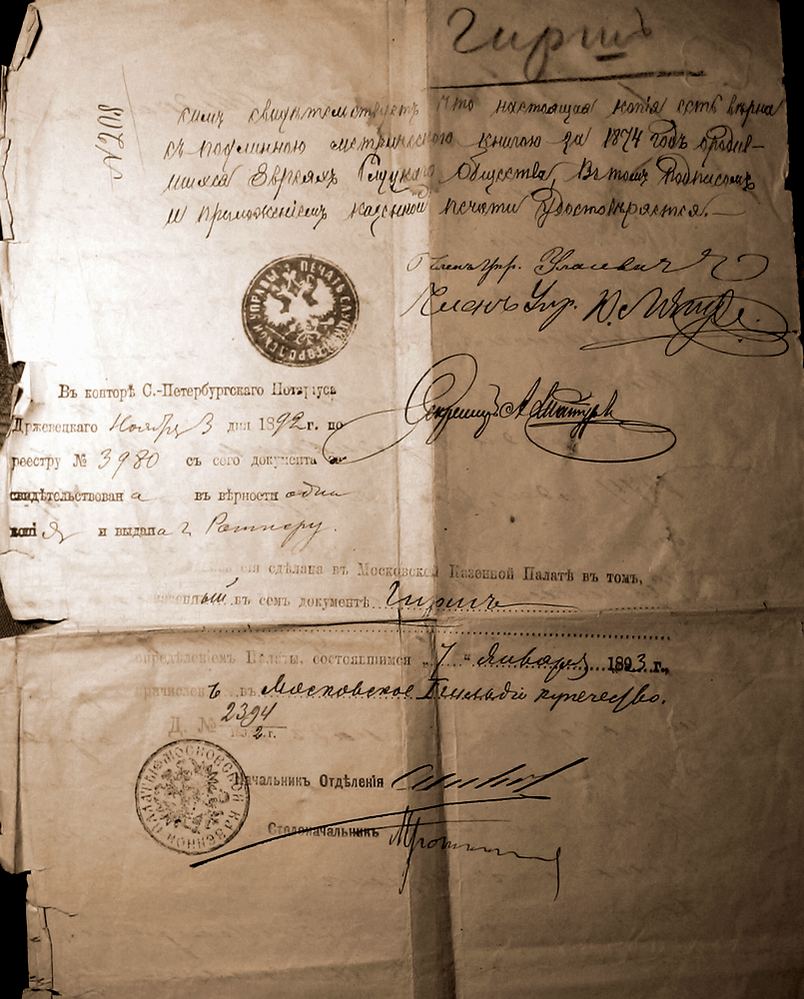 Гиршъ
№ 208
симъ свидѣтельствуетъ что настоящая копія есть вѣрна
съ подлинною метрическою книгою за 1874 годъ о родив-
шихся Евреяхъ Слуцкаго Общества, Въ томъ Подписомъ
и приложеніемъ казенной печати Удостовѣряется.
Членъ Упр.
Членъ Упр.
ПЕЧАТЬ СЛУЦКОЙ ГОРОДСКОЙ УПРАВЫ
Секретарь А.
Въ конторѣ С.-Петербургскаго Нотаріуса
Држевецкаго Ноября 3 дня 1892 г. по
реестру № 3980 съ сего документа за-
свидѣтельствована въ вѣрности одна
копія и выдана г. Ратнеру.
сдѣлана въ Московской Казенной Палатѣ въ томъ,
въ семъ документѣ Гиршъ
опредѣленіемъ Палаты, состоявшимся „7" Января 1893 г.,
причисленъ въ Московское 1 гильдіи купечество.
Д. № 2394
2 г.
МОСКОВСКОЙ КАЗЕННОЙ ПАЛАТЫ
Начальникъ Отдѣленія
Столоначальникъ